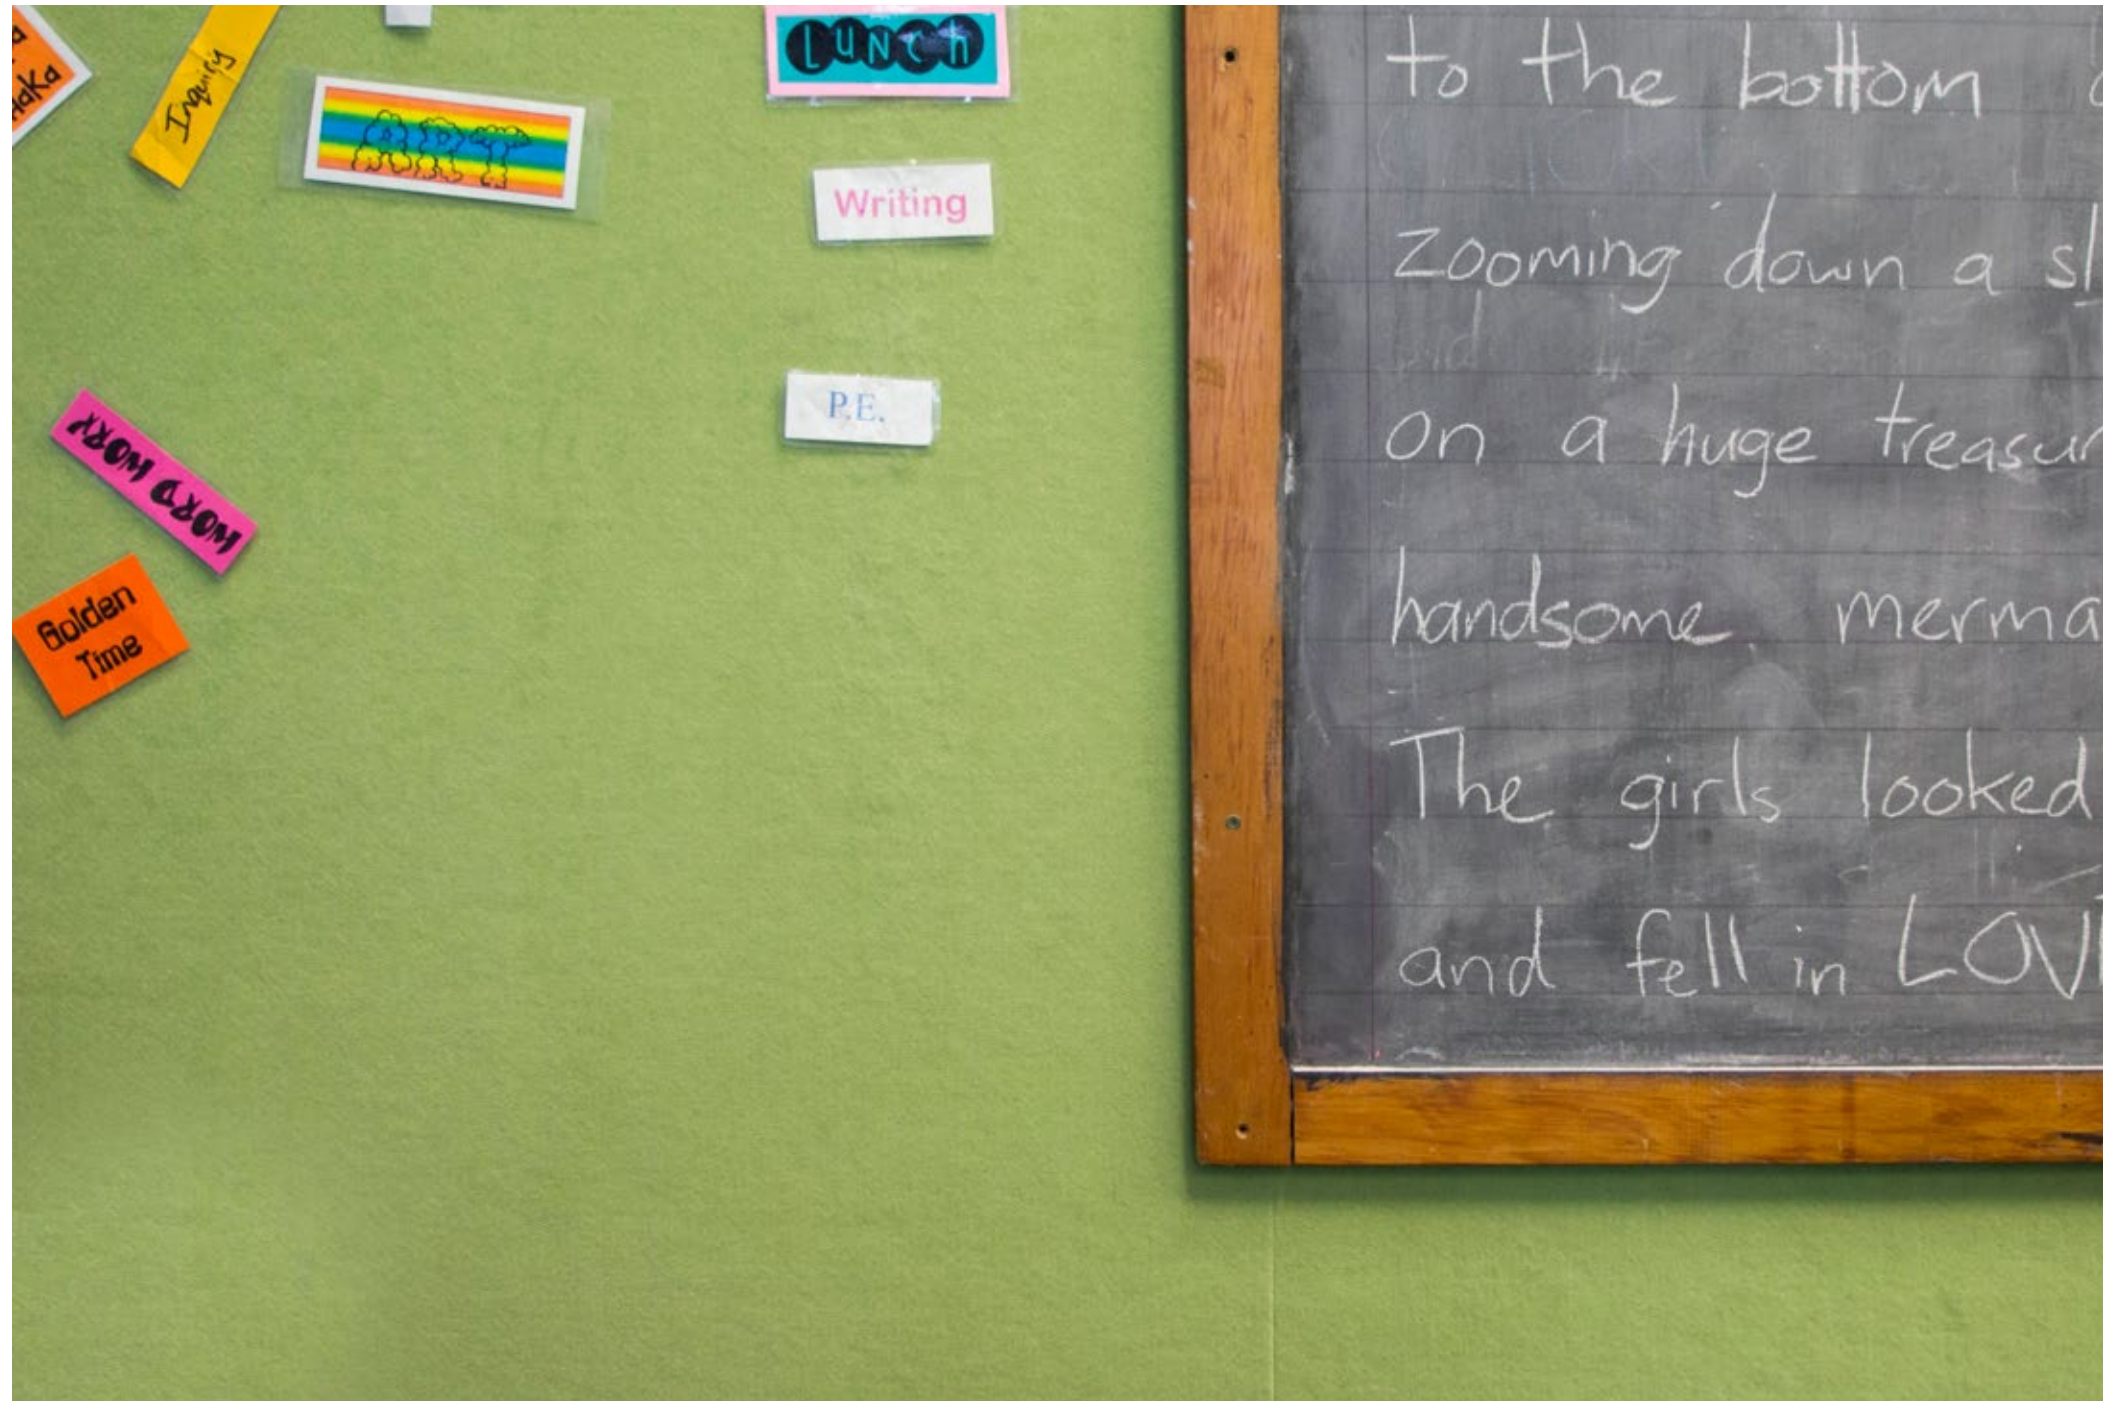 HaKa
Inquiry
ART
LUNCh
Writing
P.E.
WORD WORK
Golden
Time
to the bottom
zooming down a sl
on a huge treasur
handsome merma
The girls looked
and fell in LOVE